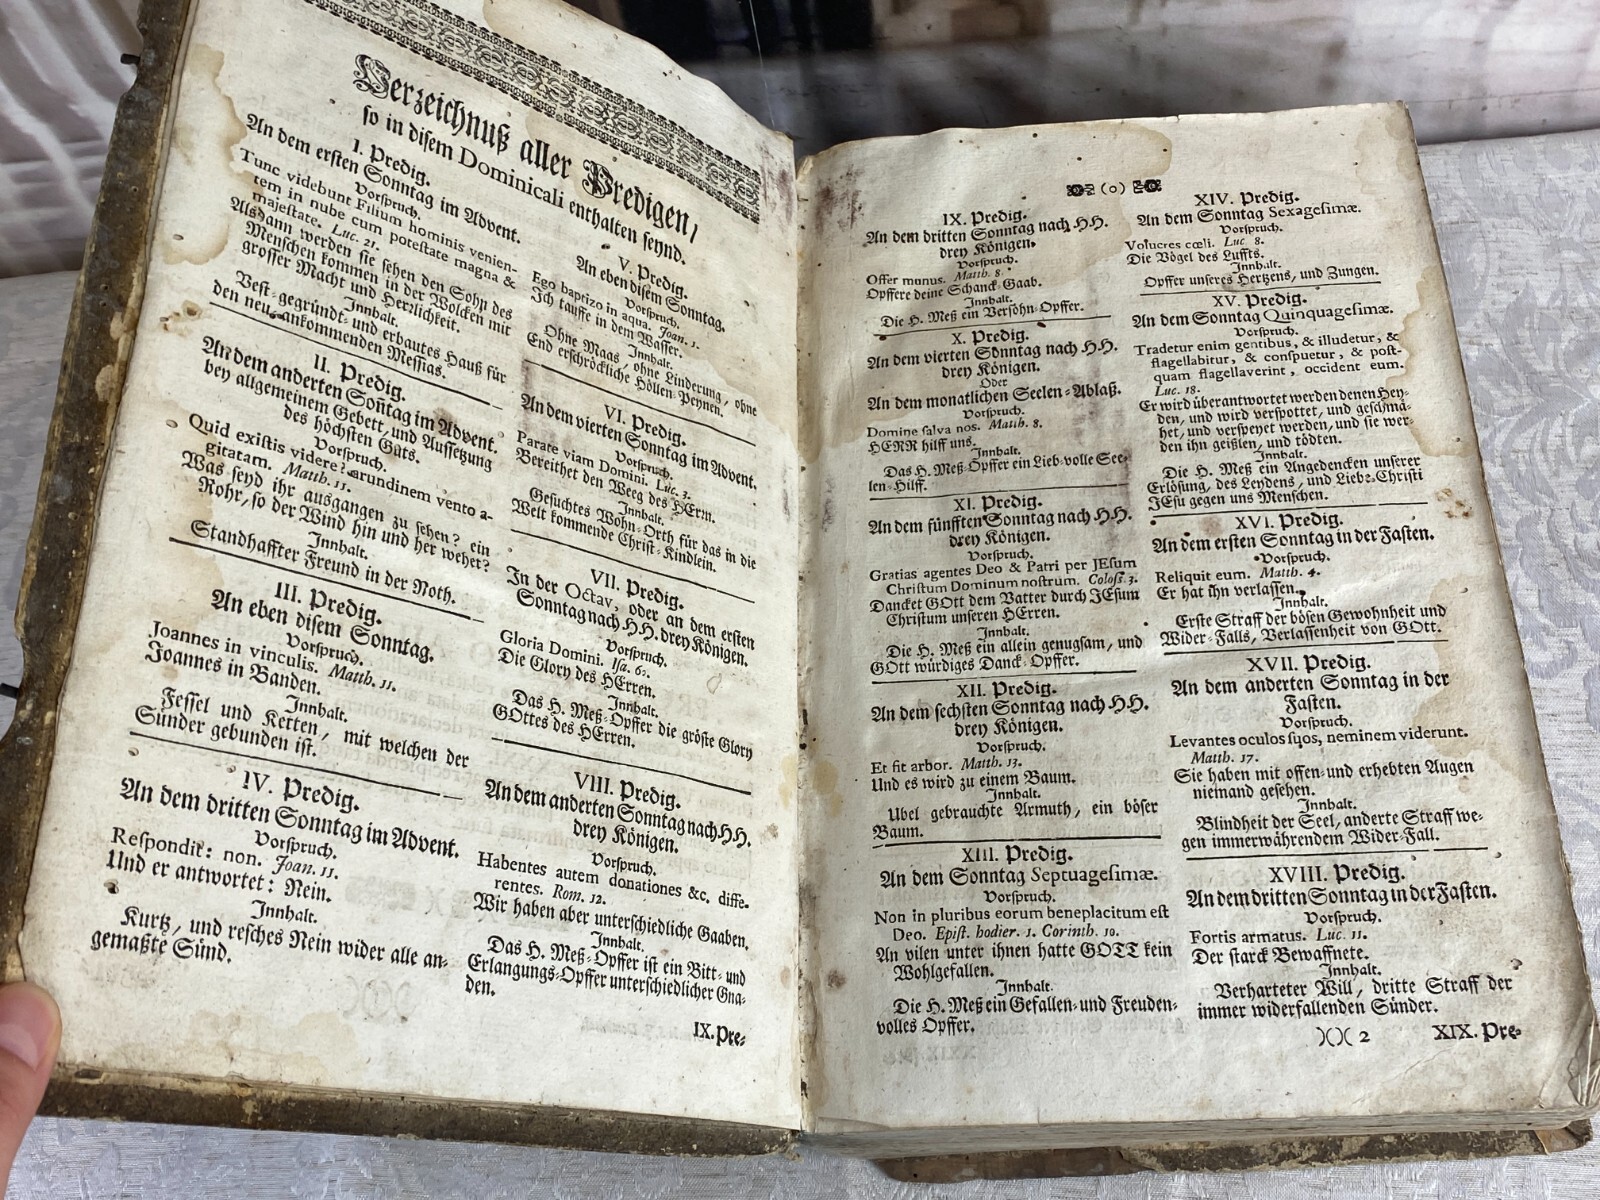 Verzeichnuß aller Predigen/
so in disem Dominicali enthalten seynd.
I. Predig.
An dem ersten Sonntag im Advent.
Vorspruch.
Tunc videbunt Filium hominis venien-
tem in nube cum potestate magna &
majestate. Luc. 21.
Alsdann werden sie sehen den Sohn des
Menschen kommen in der Wolcken mit
grosser Macht und Herrlichkeit.
Innhalt.
Vest-gegründt- und erbautes Hauß für
den neu-ankommenden Messias.
II. Predig.
An dem anderten Sontag im Advent.
bey allgemeinem Gebett, und Aussetzung
des höchsten Guts.
Vorspruch.
Quid existis videre? arundinem vento a-
gitatam. Matth. 11.
Was seyd ihr ausgangen zu sehen? ein
Rohr, so der Wind hin und her wehet?
Innhalt.
Standhaffter Freund in der Noth.
III. Predig.
An eben disem Sonntag.
Vorspruch.
Joannes in vinculis. Matth. 11.
Joannes in Banden.
Innhalt.
Fessel und Ketten, mit welchen der
Sünder gebunden ist.
IV. Predig.
An dem dritten Sonntag im Advent.
Vorspruch.
Respondit: non. Joan. 11.
Und er antwortet: Nein.
Innhalt.
Kurtz, und resches Nein wider alle an-
gemaßte Sünd.
V. Predig.
An eben disem Sonntag.
Vorspruch.
Ego baptizo in aqua. Joan. 1.
Ich tauffe in dem Wasser.
Innhalt.
Ohne Maas, ohne Linderung, ohne
End erschröckliche Höllen-Peynen.
VI. Predig.
An dem vierten Sonntag im Advent.
Vorspruch.
Parate viam Domini. Luc. 3.
Bereithet den Weeg des HErrn.
Innhalt.
Gesuchtes Wohn-Orth für das in die
Welt kommende Christ-Kindlein.
VII. Predig.
In der Octav, oder an dem ersten
Sonntag nach HH. drey Königen.
Vorspruch.
Gloria Domini. Isa. 60.
Die Glory des HErren.
Innhalt.
Das H. Meß-Opffer die gröste Glory
GOttes des HErren.
VIII. Predig.
An dem anderten Sonntag nach HH.
drey Königen.
Vorspruch.
Habentes autem donationes &c. diffe-
rentes. Rom. 12.
Wir haben aber unterschiedliche Gaaben.
Innhalt.
Das H. Meß-Opffer ist ein Bitt- und
Erlangungs-Opffer unterschiedlicher Gna-
den.
IX. Pre-
(0)
IX. Predig.
An dem dritten Sonntag nach HH.
drey Königen.
Vorspruch.
Offer munus. Matth. 8.
Opffere deine Schanck-Gaab.
Innhalt.
Die H. Meß ein Versohn-Opffer.
X. Predig.
An dem vierten Sonntag nach HH.
drey Königen.
Oder
An dem monatlichen Seelen-Ablaß.
Vorspruch.
Domine salva nos. Matth. 8.
HERR hilff uns.
Innhalt.
Das H. Meß-Opffer ein Lieb-volle See-
len-Hilff.
XI. Predig.
An dem fünfften Sonntag nach HH.
drey Königen.
Vorspruch.
Gratias agentes Deo & Patri per JEsum
Christum Dominum nostrum. Coloss. 3.
Dancket GOtt dem Vatter durch JEsum
Christum unseren HErren.
Innhalt.
Die H. Meß ein allein genugsam, und
GOtt würdiges Danck-Opffer.
XII. Predig.
An dem sechsten Sonntag nach HH.
drey Königen.
Vorspruch.
Et fit arbor. Matth. 13.
Und es wird zu einem Baum.
Innhalt.
Ubel gebrauchte Armuth, ein böser
Baum.
XIII. Predig.
An dem Sonntag Septuagesimæ.
Vorspruch.
Non in pluribus eorum beneplacitum est
Deo. Epist. hodier. 1. Corinth. 10.
An vilen unter ihnen hatte GOTT kein
Wohlgefallen.
Innhalt.
Die H. Meß ein Gefallen- und Freuden-
volles Opffer.
XIV. Predig.
An dem Sonntag Sexagesimæ.
Vorspruch.
Volucres cœli. Luc 8.
Die Vögel des Luffts.
Innhalt.
Opffer unseres Hertzens, und Zungen.
XV. Predig.
An dem Sonntag Quinquagesimæ.
Vorspruch.
Tradetur enim gentibus, & illudetur, &
flagellabitur, & conspuetur, & post-
quam flagellaverint, occident eum.
Luc. 18.
Er wird überantwortet werden denen Hey-
den, und wird verspottet, und geschmä-
het, und verspeyet werden, und sie wer-
den ihn geißlen, und tödten.
Innhalt.
Die H. Meß ein Angedencken unserer
Erlösung, des Leydens, und Liebe Christi
JEsu gegen uns Menschen.
XVI. Predig.
An dem ersten Sonntag in der Fasten.
Vorspruch.
Reliquit eum. Matth. 4.
Er hat ihn verlassen.
Innhalt.
Erste Straff der bösen Gewohnheit und
Wider-Falls, Verlassenheit von GOtt.
XVII. Predig.
An dem anderten Sonntag in der
Fasten.
Vorspruch.
Levantes oculos suos, neminem viderunt.
Matth. 17.
Sie haben mit offen- und erhebten Augen
niemand gesehen.
Innhalt.
Blindheit der Seel, anderte Straff we-
gen immerwährendem Wider-Fall.
XVIII. Predig.
An dem dritten Sonntag in der Fasten.
Vorspruch.
Fortis armatus. Luc. 11.
Der starck Bewaffnete.
Innhalt.
Verharteter Will, dritte Straff der
immer widerfallenden Sünder.
)()( 2
XIX. Pre-